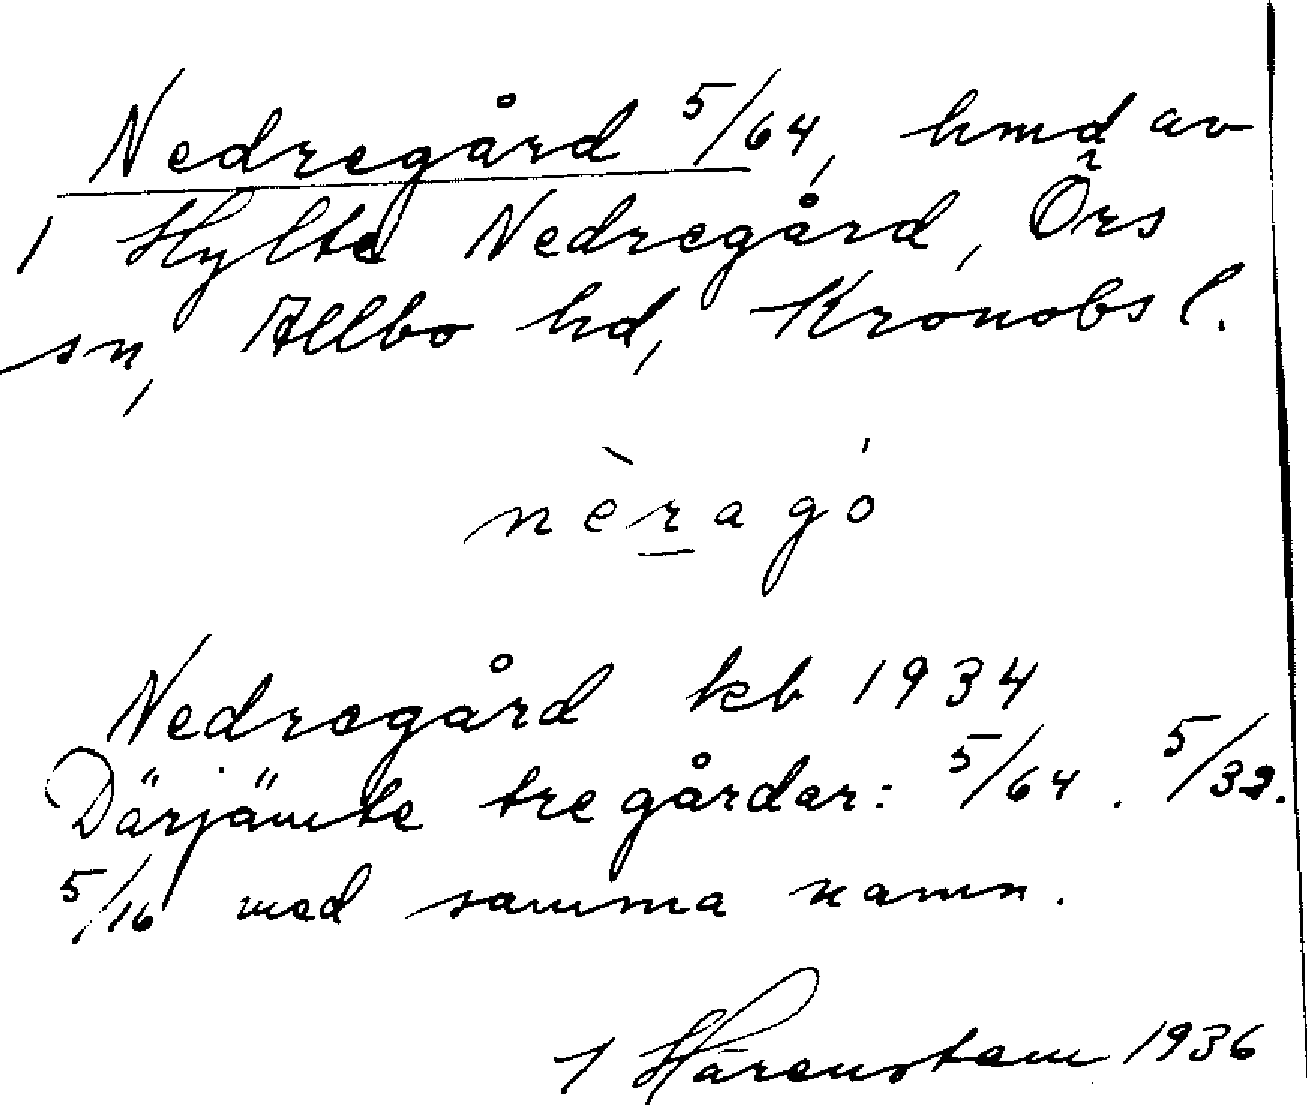 Nedregård 5/64, hmd av
1 Hylte Nedregård, Örs
sn, Allbo hd, Kronobs l.
nèragó
Nedregård kb 1934
Därjämte tre gårdar: 5/64. 5/32.
5/16 med samma namn.
Härenstam 1936